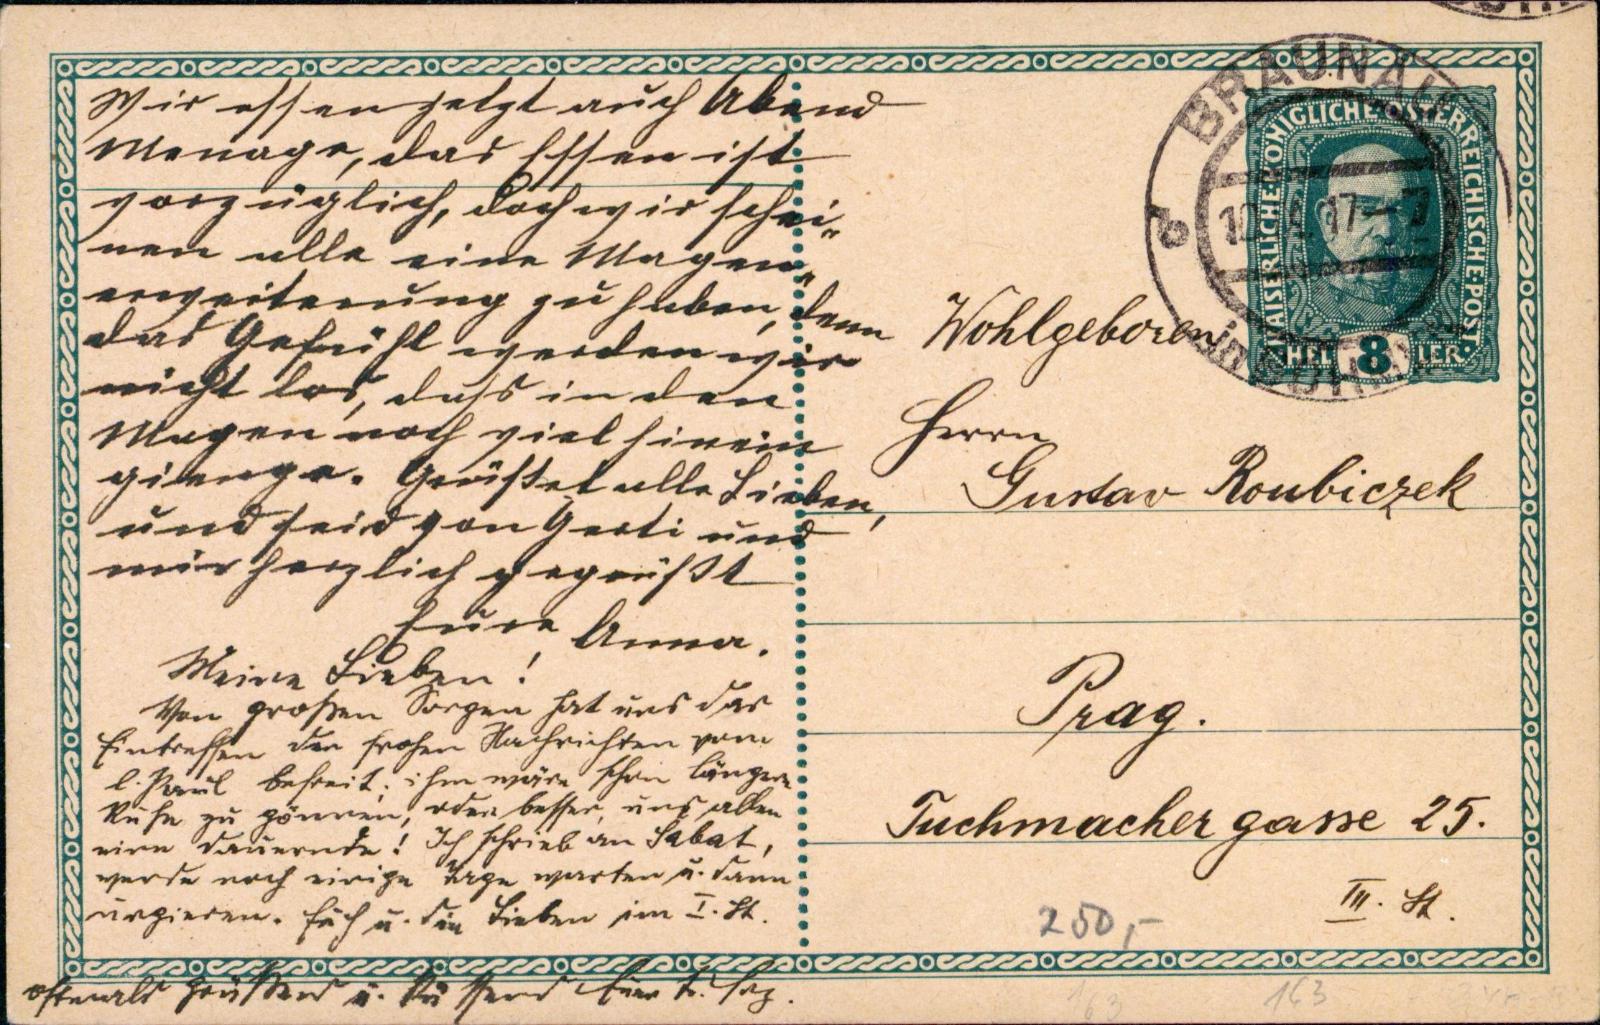 Wir essen jetzt auch Abend
Menage, das Essen ist
vorzüglich, doch wir schei-
nen alle eine Magen-
erweiterung zu haben, denn
das Gefühl werden wir
nicht los, dass in den
Magen noch viel hinein
gienge. Grüßet alle Lieben,
und seid von Gerti und
mir herzlich gegrüßt
Eure Anna.
Meine Lieben!
Von großen Sorgen hat uns das
Eintreffen der frohen Nachrichten vom
l. Paul befreit; ihm wäre schon längere
Ruhe zu gönnen, oder besser, uns allen
eine dauernde! Ich schrieb an Sabat,
werde noch einige Tage warten u. dann
urgieren. Euch u. die Lieben im I. St.
oftmals grüßend u. küssend Euer
BRAUNAU
in BÖHMEN
d
17
KAISERLICHE KÖNIGLICHE ÖSTERREICHISCHE POST
HEL 8 LER
Wohlgeboren
Herrn
Gustav Roubiczek
Prag.
Tuchmachergasse 25.
III. St.
250,-
163
163